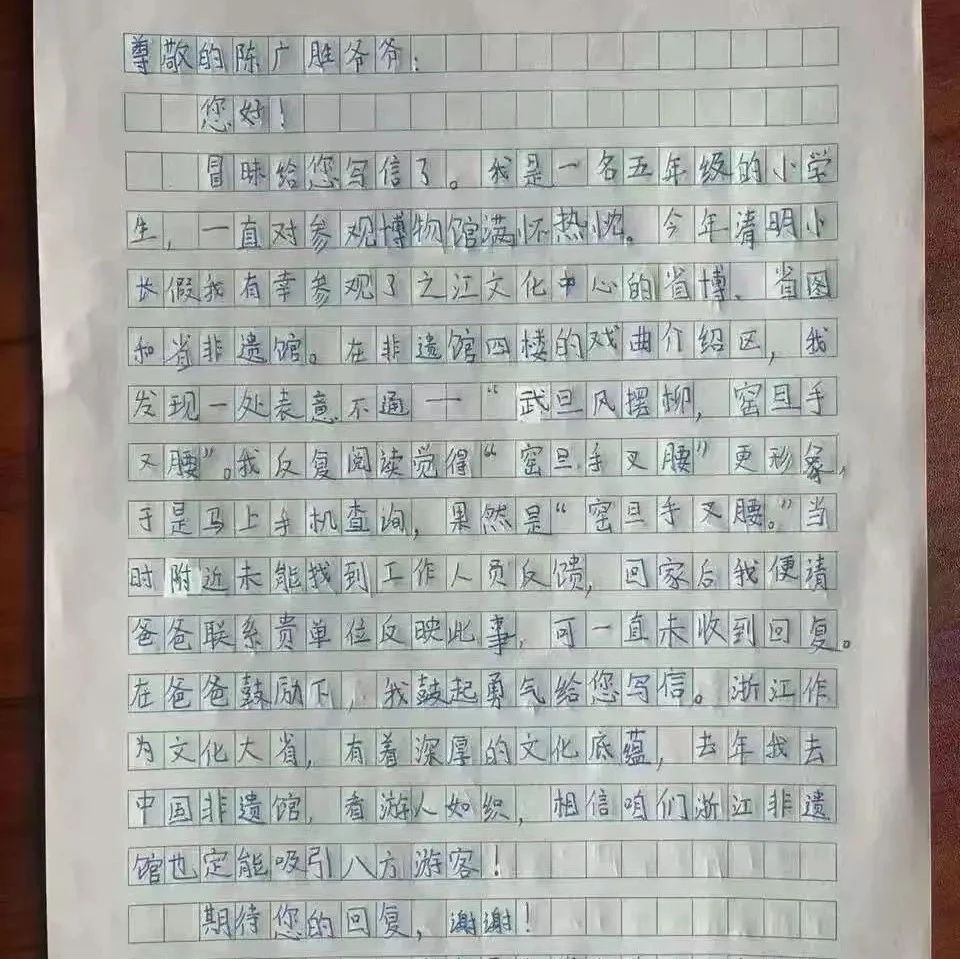 尊敬的陈广胜爷爷：
您好！
冒昧给您写信了。我是一名五年级的小学
生，一直对参观博物馆满怀热忱。今年清明小
长假我有幸参观了之江文化中心的省博、省图
和省非遗馆。在非遗馆四楼的戏曲介绍区，我
发现一处表意不通——“武旦风摆柳，窑旦手
叉腰”。我反复阅读觉得“窑旦手叉腰”更形象，
于是马上手机查询，果然是“窑旦手叉腰。”当
时附近未能找到工作人员反馈，回家后我便请
爸爸联系贵单位反映此事，可一直未收到回复。
在爸爸鼓励下，我鼓起勇气给您写信。浙江作
为文化大省，有着深厚的文化底蕴，去年我去
中国非遗馆，看游人如织，相信咱们浙江非遗
馆也定能吸引八方游客！
期待您的回复，谢谢！